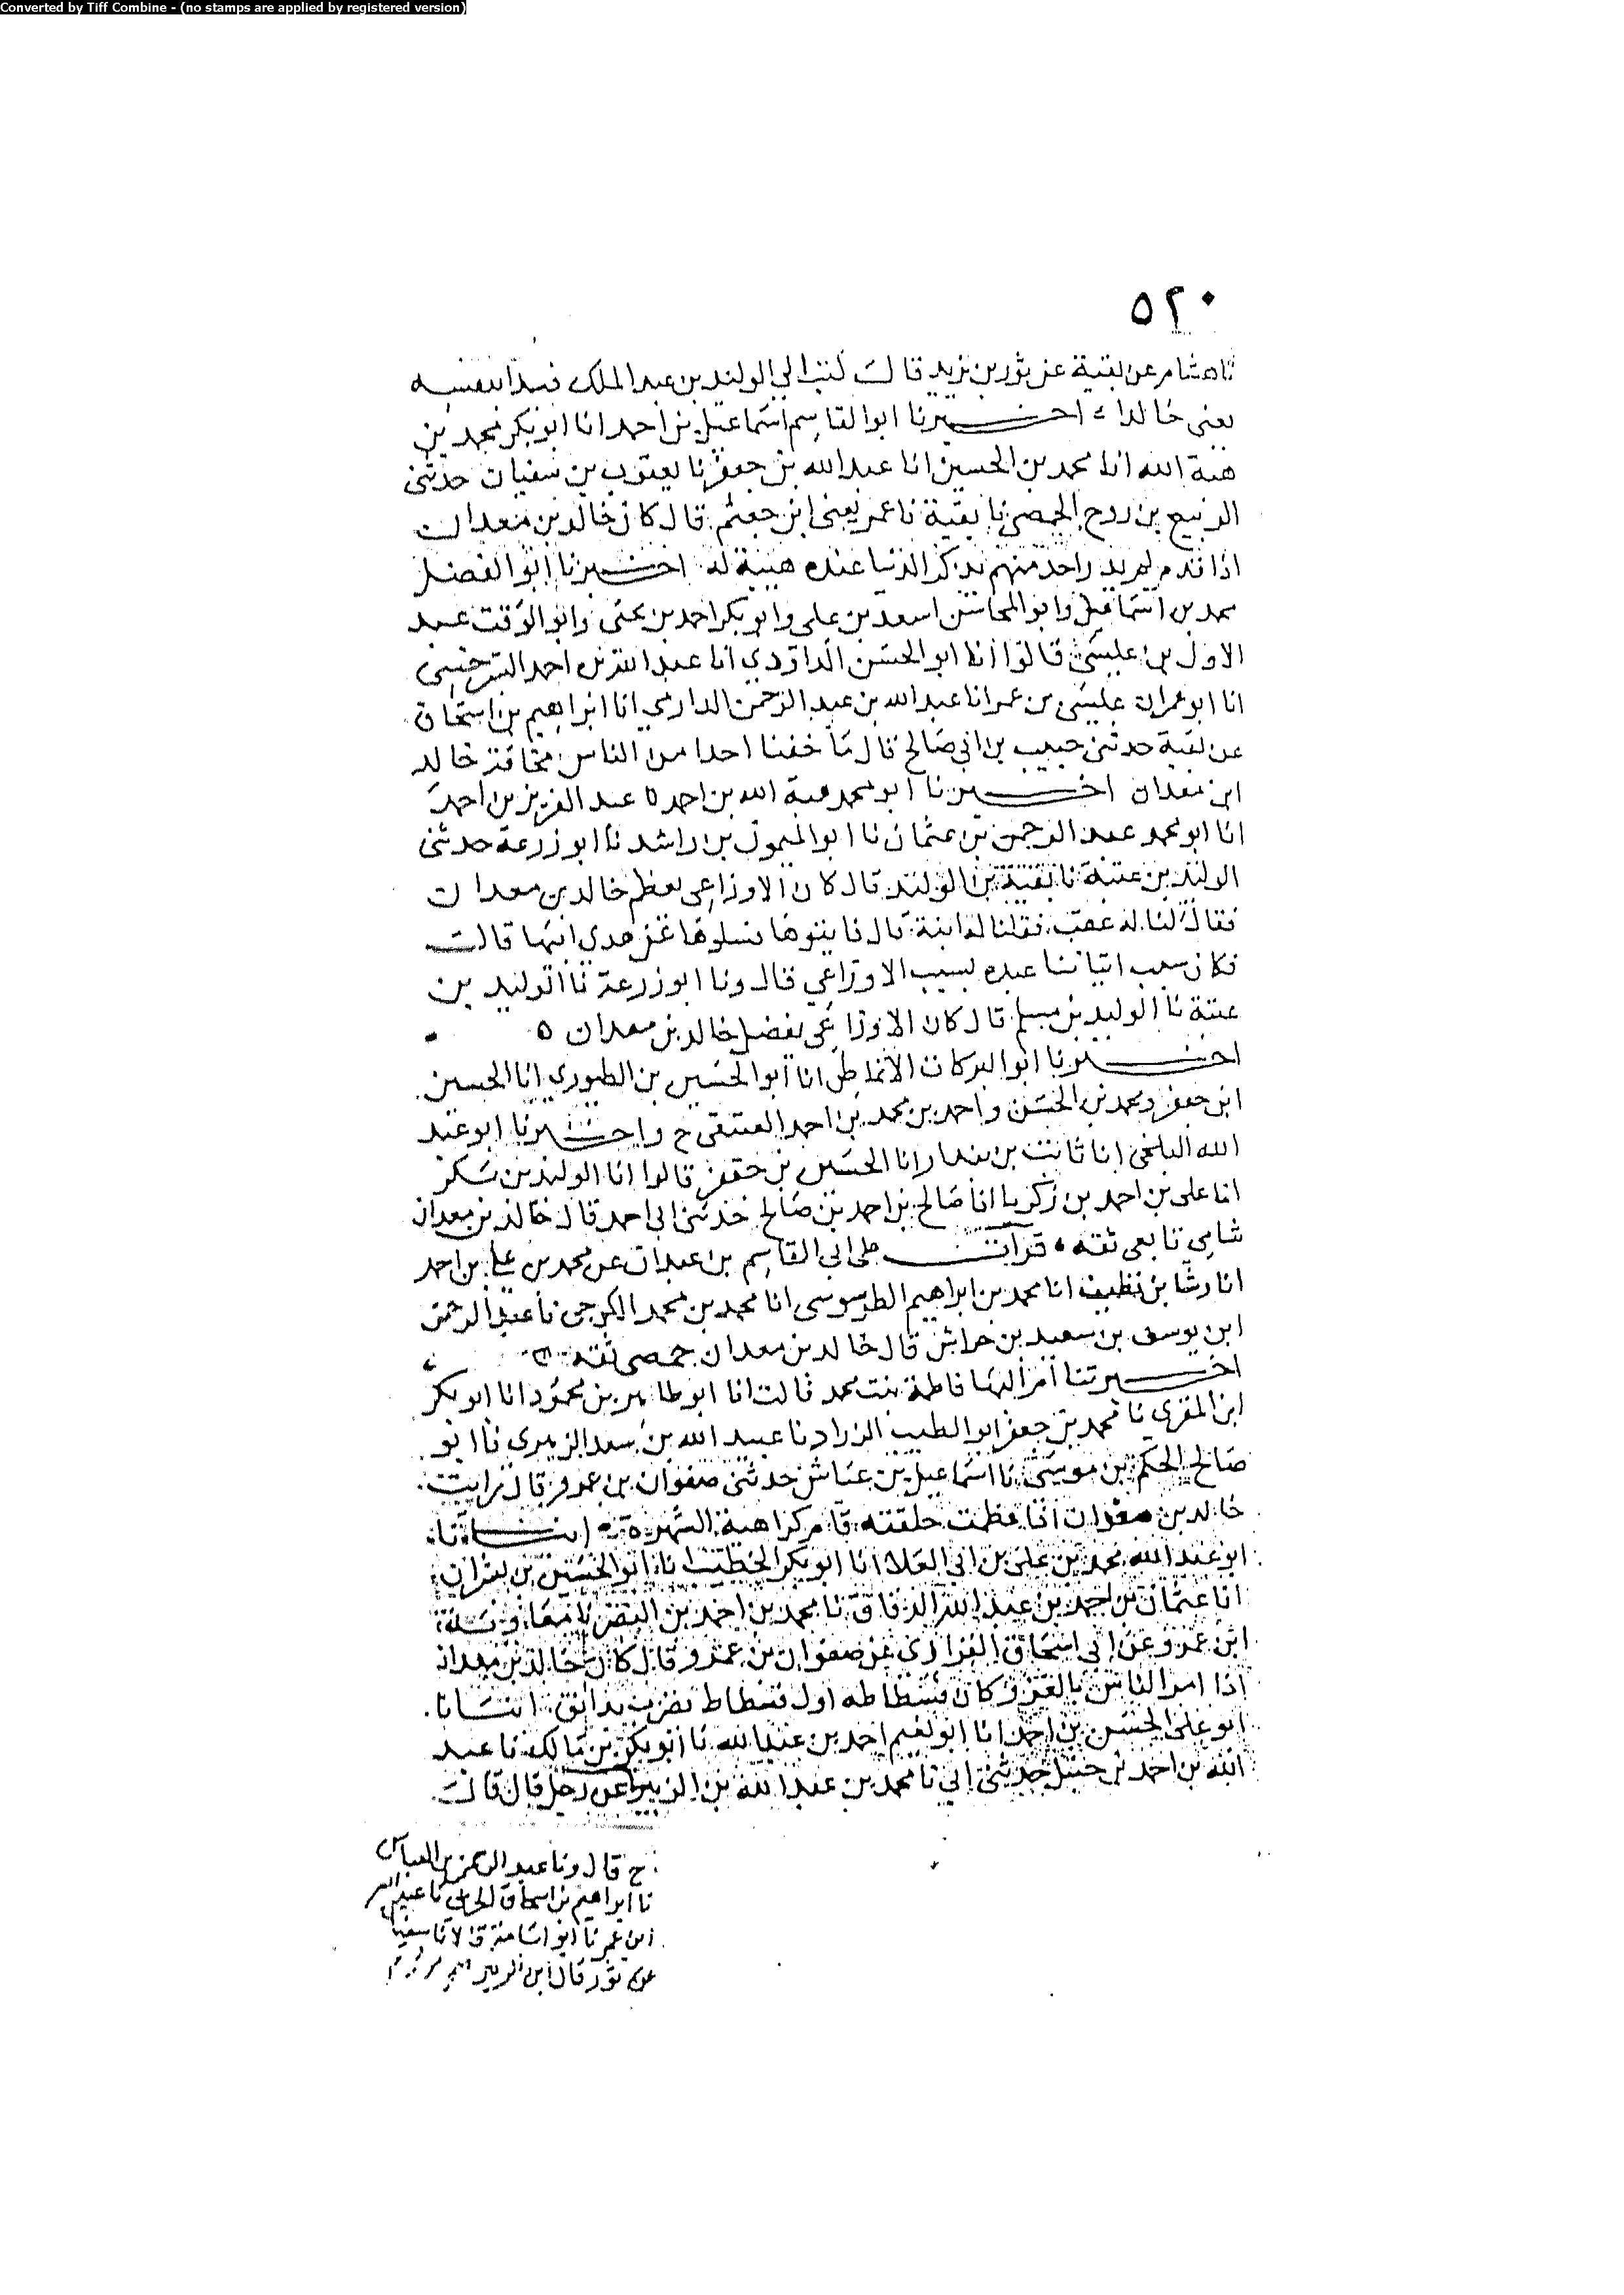 Converted by Tiff Combine - (no stamps are applied by registered version)
٥٢٠
نا هشام عن بقية عن ثور بن يزيد قال كتب الي الوليد بن عبد الملك فبدا بنفسه
يعني خالدا اخبرنا ابو القاسم اسماعيل بن احمد انا ابو بكر محمد بن
هبة الله انا محمد بن الحسين انا عبد الله بن جعفر نا يعقوب بن سفيان حدثني
الربيع بن روح الحمصي نا بقية نا عمر يعني ابن جعثم قال كان خالد بن معدان
اذا قدم لم يرد واحد منهم يذكر الدنيا عنده هيبة له اخبرنا ابو الفضل
محمد بن اسماعيل وابو المحاسن اسعد بن علي وابو بكر احمد بن يحيى وابو الوقت عبد
الاول بن عيسى قالوا انا ابو الحسن الداودي انا عبد الله بن احمد السرخسي
انا ابو عمران عيسى بن عمر انا عبد الله بن عبد الرحمن الدارمي انا ابراهيم بن اسحاق
عن بقية حدثني حبيب بن ابي صالح قال ما خفنا احدا من الناس مخافتنا خالد
ابن معدان اخبرنا ابو محمد هبة الله بن احمد نا عبد العزيز بن احمد
انا ابو محمد عبد الرحمن بن عثمان نا ابو الميمون بن راشد نا ابو زرعة حدثني
الوليد بن عتبة نا بقية بن الوليد قال كان الاوزاعي يعظم خالد بن معدان
فقال لنا له عقب فقلنا له ابنة قال فايتوها فسلوها عن هدي ابيها قال
فكان سبب اتياننا عبدة بسبب الاوزاعي قال ونا ابو زرعة نا الوليد بن
عتبة نا الوليد بن مسلم قال كان الاوزاعي يفضل خالد بن معدان ه
اخبرنا ابو البركات الانماطي انا ابو الحسين بن الطيوري انا الحسين
ابن جعفر ومحمد بن الحسن واحمد بن محمد بن احمد العتيقي ح واخبرنا ابو عبد
الله البلخي انا ثابت بن بندار انا الحسين بن جعفر قالوا انا الوليد بن بكر
انا علي بن احمد بن زكريا انا صالح بن احمد بن صالح حدثني ابي احمد قال خالد بن معدان
شامي تابعي ثقة قرات على ابي القاسم بن عبدان عن محمد بن علي بن احمد
انا رشا بن نظيف انا محمد بن ابراهيم الطرسوسي انا محمد بن محمد الكرجي نا عبد الرحمن
ابن يوسف بن سعيد بن خراش قال خالد بن معدان حمصي ثقة
اخبرتنا ام البهاء فاطمة بنت محمد قالت انا ابو طاهر بن محمود انا ابو بكر
ابن المقري نا محمد بن جعفر ابو الطيب الزراد نا عبيد الله بن سعد الزهري نا ابو
صالح الحكم بن موسى نا اسماعيل بن عياش حدثني صفوان بن عمرو قال رايت
خالد بن معدان اذا عظمت حلقته قام كراهية الشهرة ه انبانا
ابو عبد الله محمد بن علي بن ابي العلا انا ابو بكر الخطيب انا ابو الحسين بن بشران
انا عثمان بن احمد بن عبد الله الدقاق نا محمد بن احمد بن النضر نا معاوية
ابن عمرو عن ابي اسحاق الفزاري عن صفوان بن عمرو قال كان خالد بن معدان
اذا امر الناس بالغزو كان فسطاطه اول فسطاط يضرب بدابق انبانا
ابو علي الحسن بن احمد انا ابو نعيم احمد بن عبد الله نا ابو بكر بن مالك نا عبد
الله بن احمد بن حنبل حدثني ابي نا محمد بن عبد الله بن الزبير عن رجل قال قال
ح قال ونا عبد الرحمن بن العباس
نا ابراهيم بن اسحاق الحربي نا عبيد الله
ابن عمر نا ابو اسامة قالا نا سفيان
عن ثور قال ابن الزبير